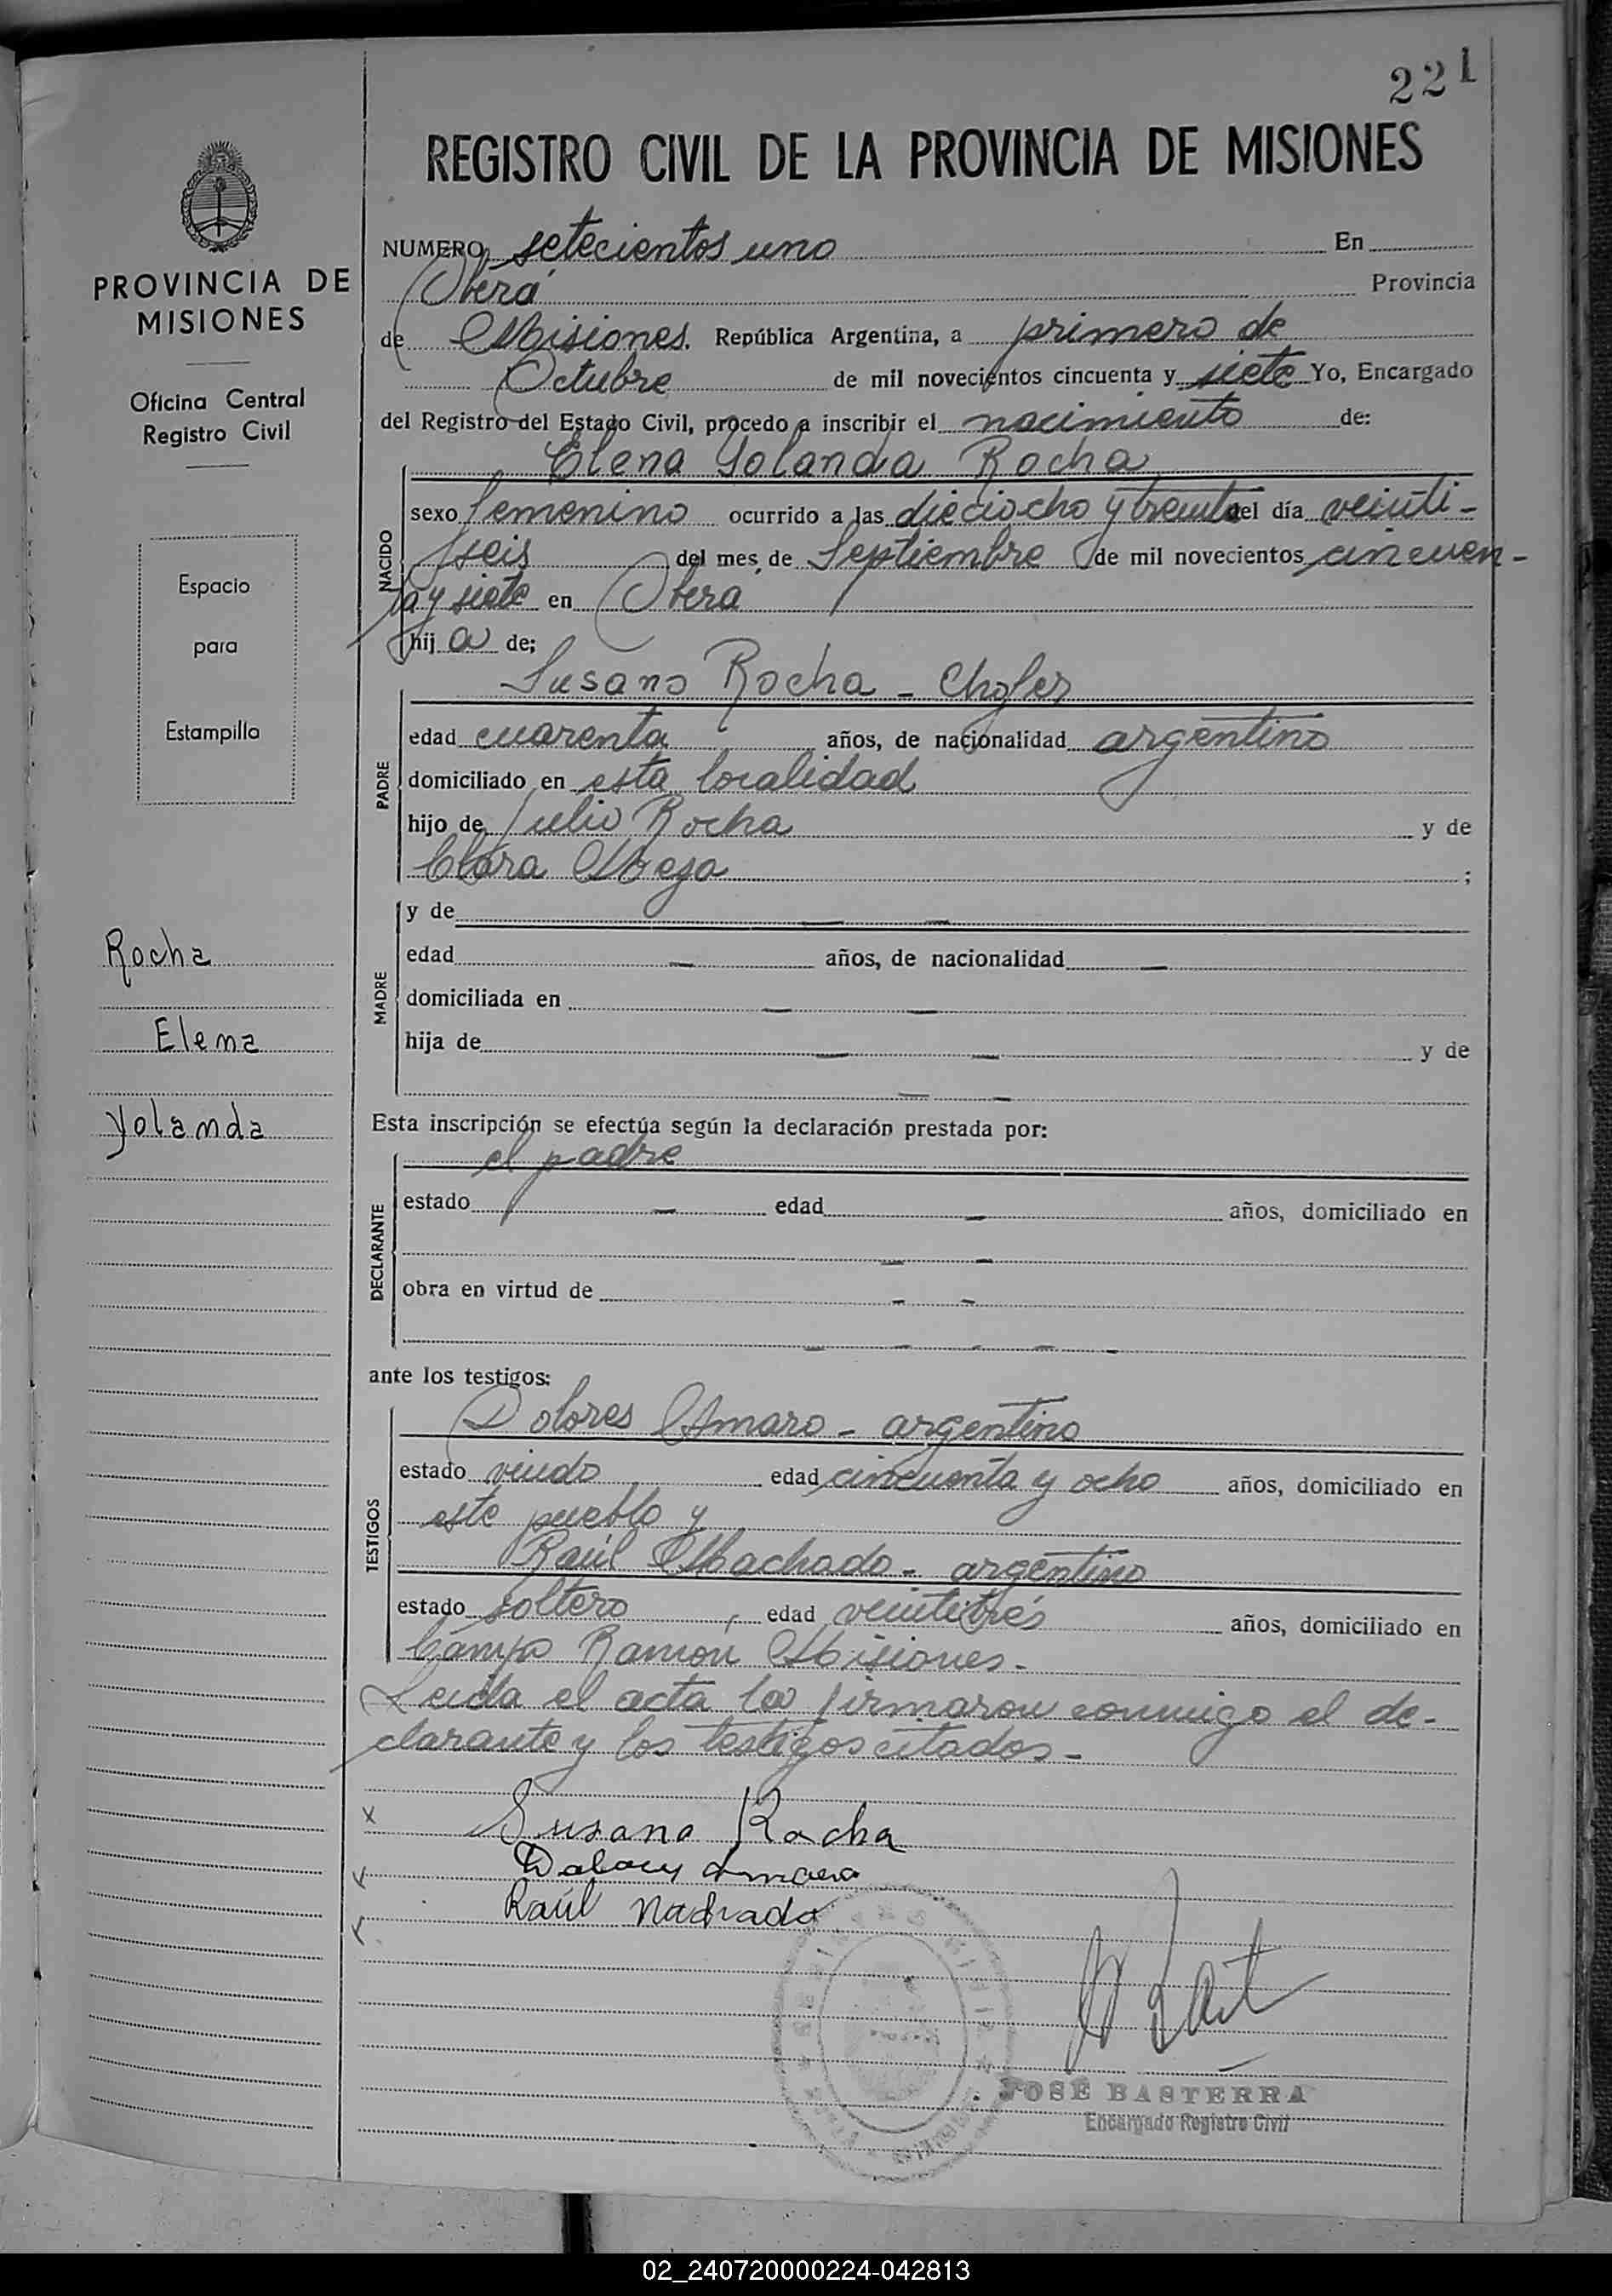 221
REGISTRO CIVIL DE LA PROVINCIA DE MISIONES
PROVINCIA DE
MISIONES
Oficina Central
Registro Civil
Espacio
para
Estampilla
Rocha
Elena
Yolanda
NUMERO setecientos uno En
Oberá Provincia
de Misiones. República Argentina, a primero de
Octubre de mil novecientos cincuenta y siete Yo, Encargado
del Registro del Estado Civil, procedo a inscribir el nacimiento de:
Elena Yolanda Rocha
NACIDO
sexo femenino ocurrido a las dieciocho y treinta del día veinti-
seis del mes de Septiembre de mil novecientos cincuen-
ta y siete en Oberá
hija de;
Susano Rocha - Chofer
PADRE
edad cuarenta años, de nacionalidad argentino
domiciliado en esta localidad
hijo de Julio Rocha y de
Clara Meza ;
MADRE
y de — —
edad — años, de nacionalidad —
domiciliada en — —
hija de — — y de
— —
Esta inscripción se efectúa según la declaración prestada por:
el padre
DECLARANTE
estado — edad — años, domiciliado en
— —
obra en virtud de - -
— - - - -
ante los testigos:
Dolores Amaro - argentino
TESTIGOS
estado viudo edad cincuenta y ocho años, domiciliado en
este pueblo y
Raúl Machado - argentino
estado soltero, edad veintitrés años, domiciliado en
Campo Ramón Misiones.-
Leida el acta la firmaron conmigo el de-
clarante y los testigos citados-
x Susano Rocha
Amaro
Raúl Machado
JOSE BASTERRA
Encargado Registro Civil
02_240720000224-042813